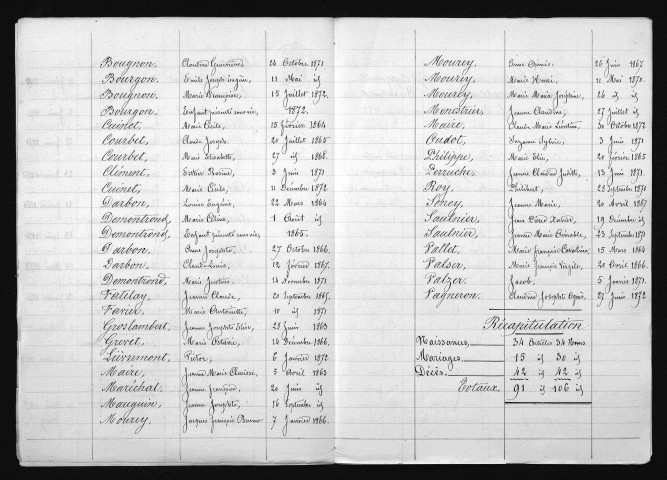 Bougnon, Claudine Guenièvre 24 Octobre 1871
Bourgon, Emile Joseph Eugène, 11 Mai id
Bougnon, Marie Françoise, 15 Juillet 1872.
Bourgon, Enfant présenté sans vie, 1872.
Cuinet, Marie Cécile, 15 février 1864
Courbet, Claude Joseph, 20 Juillet 1865
Courbet, Marie Elisabeth, 27 id 1868.
Clément, Rosine, 3 Juin 1871
Cuinet, Marie Cécile, 11 Décembre 1872
Darbon, Louise Eugénie, 22 Mars 1864
Demontrond, Marie Célina, 1 Août id
Demontrond, Enfant présenté sans vie, 1865.
Darbon, Anne Josephte, 27 Octobre 1866.
Darbon, Claude Louis, 12 février 1867.
Demontrond, Marie Justine, 14 Novembre 1871
Fatelay, Jeanne Claude, 20 Septembre 1865.
Favier, Marie Antoinette, 10 id 1871
Groslambert, Jeanne Josephte Elise, 28 Juin 1863
Grevet, Marie Octavie, 14 Décembre 1866.
Lièvremont, Victor, 6 Janvier 1872
Maire, Jeanne Marie Clarisse, 5 Avril 1863
Maréchal, Jeanne Françoise, 20 Juin id
Mauguin, Jeanne Josephte, 16 Septembre id
Mourey, Jacques François Bruno 7 Janvier 1866.
Mourey, Anne Aimée, 26 Juin 1867
Mourey, Marie Henri, 11 Mai 1870.
Mourey, Marie Maria Josephine, 26 id id
Menestrier, Jeanne Claudine, 27 Juillet id
Maire, Claude Marie Léontine, 30 Octobre 1872
Oudot, Suzanne Sylvie, 3 Juin 1871
Philippe, Marie Elise, 20 février 1865
Perruche, Jeanne Claudine Judith, 13 Juin 1871.
Roy, Philibert, 23 Septembre 1871
Soney, Jeanne Marie, 20 Avril 1867
Saulnier, Jean Désiré Xavier, 19 Décembre id
Saulnier, Jeanne Marie Aimable, 23 Septembre 1871
Vallet, Marie françoise Caroline, 15 Mars 1864
Valser, Marie François Virgile, 20 Avril 1866.
Valzer, Jacob, 5 Janvier 1871.
Vagneron, Claudine Josephte Agnès, 27 Juin 1872
Récapitulation
Naissances, 34 Entrées 34 Noms
Mariages, 15 id 30 id
Décès, 42 id 42 id
Totaux 91 id 106 id